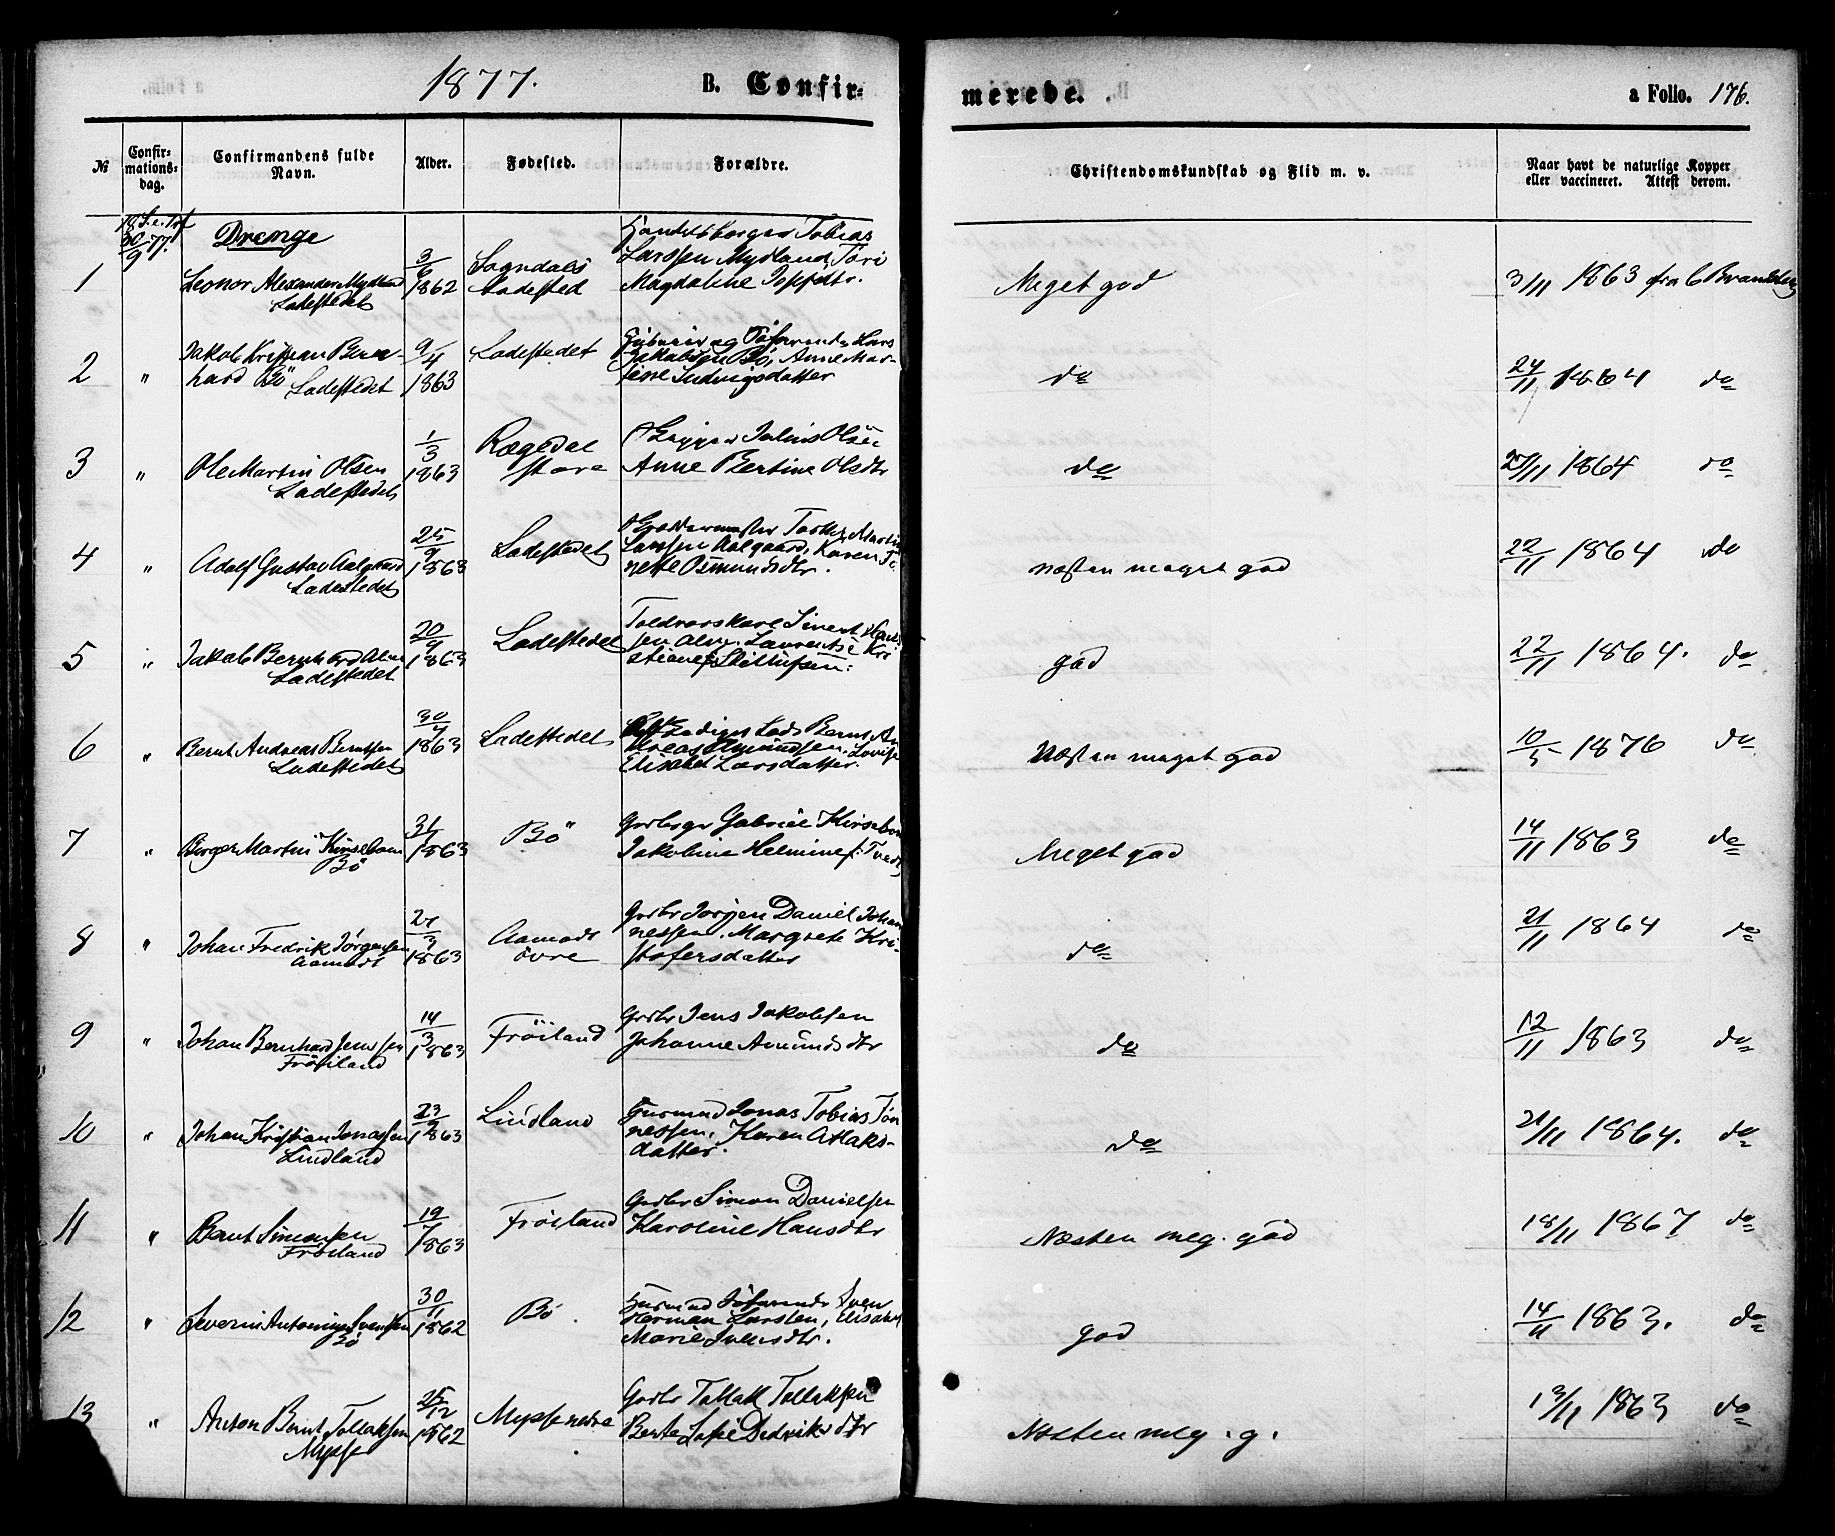 1877.
B. Confir-
merede.
a Folio. 176.
№
Confir-
mations-
dag.
Confirmandens fulde
Navn.
Alder.
Fødested.
Forældre.
Christendomskundskab og Flid m. v.
Naar havt de naturlige Kopper
eller vaccineret. Attest derom.
30/9 77.
Drenge
1
Leonor Alexander Mydland
Ladestedet
3/6 1862
Sogndals
Ladested
Handelsborger Tobias
Larssen Mydland, Tori
Magdalene Joppdtr.
Meget god
3/11 1863 fra C Brandberg
2
"
Jakob Kristian Bern-
hard Bö
Ladestedet
9/4 1863
Ladestedet
og Söfarende Lars
Jakobsen Bö, Anne Mar-
tine Ludvigsdatter
do
24/11 1864 do
3
"
Ole Martin Olsen
Ladestedet
1/3 1863
Rægedal
store
Julius Olsen
Anne Bertine Olsdtr
do
1864 do
4
"
Adolf Gustav Aalgaard
Ladestedet
25/9 1863
Ladestedet
Larssen Aalgaard, Karen Te-
nette Osmundsdtr.
næsten meget god
22/11 1864 do
5
"
Jakob Bernhard
Ladestedet
20/4 1863
Ladestedet
Toldrorskarl Sivert Han-
Laurentse Kri-
stiane
god
22/11 1864. do
6
"
Bernt Andreas Berntsen
Ladestedet
30/4 1863
Ladestedet
Lods Bernt An-
dreas Amundsen, Lovise
Elisabet Larsdatter.
Næsten meget god
10/5 1876 do
7
"
Birger Martin Kirsebom
Bö
31/1 1863
Bö
Gbrbgr Gabriel Kirsebom
Jakobine Helmine f. Tvedt
Meget god
14/11 1863 do
8
"
Johan Fredrik Jørgensen
Aamodt
21/3 1863
Aamodt
övre
Gbrbr Jörgen Daniel Johan-
nessen, Margrete Kri-
stofersdatter
do
21/11 1864 do
9
"
Johan Bernhard Jenssen
Fröiland
14/3 1863
Fröiland
Gbrbr Jens Jakobsen
Johanne Amundsdtr
do
12/11 1863 do
10
"
Johan Kristian Jonassen
Lindland
23/9 1863
Lindland
Husmand Jonas Tobias Tön-
nessen, Karen Aslaks-
datter.
do
21/11 1864. do
11
"
Bernt Simonsen
Fröiland
19/7 1863
Fröiland
Gbrbr Simon Danielsen
Karoline Hansdtr
Næsten meg. god
18/11 1867 do
12
"
Severin Antonius Svensen
Bö
30/11 1862
Bö.
Husmand Söfarende Sven
Herman Larsen, Elisabet
Marie Svensdtr.
god
14/11 1863. do
13
"
Anton Bernt Tollaksen
Mysse
25/12 1862
Mysse nedre
Gbrbr Tollak Tollaksen
Berte Sofie Didriksdtr
Næsten meg. g.
13/11 1863 do